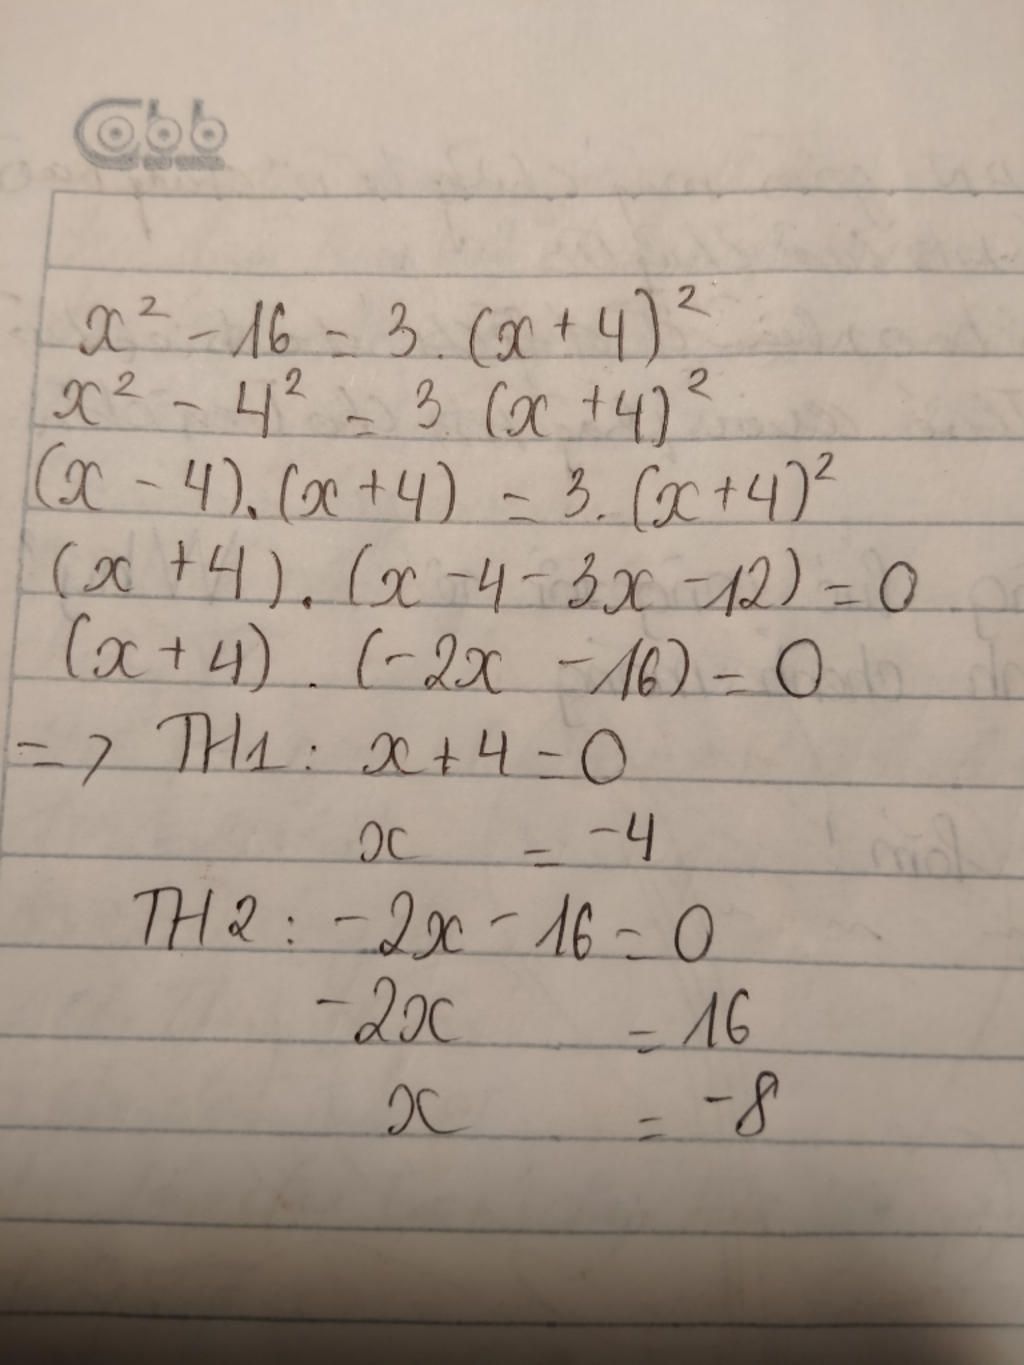 Cobb
x² - 16 = 3. (x + 4)²
x² - 4² = 3. (x + 4)²
(x - 4). (x + 4) = 3. (x + 4)²
(x + 4). (x - 4 - 3x - 12) = 0
(x + 4). (-2x - 16) = 0
=> TH1: x + 4 = 0
x = -4
TH2: -2x - 16 = 0
-2x = 16
x = -8